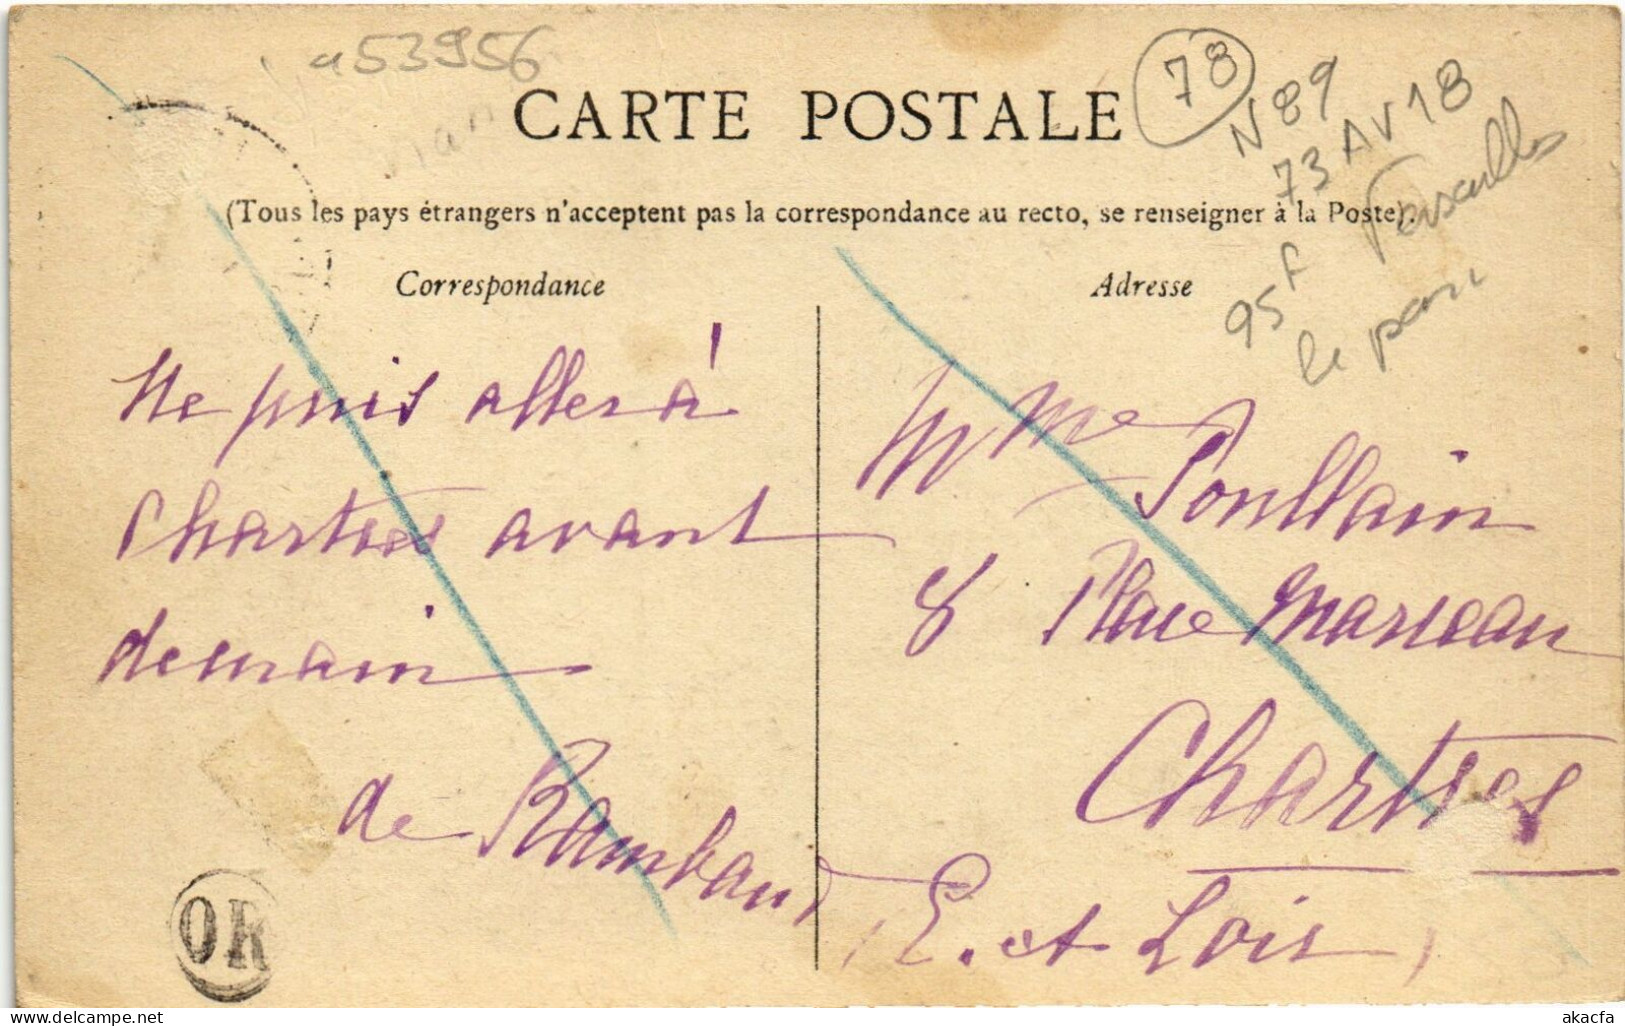 a53956
CARTE POSTALE
78
N 89
73 AV 18
Versailles
95F
le parc
(Tous les pays étrangers n'acceptent pas la correspondance au recto, se renseigner à la Poste).
Correspondance
Ne puis aller à
Chartres avant
demain
de Rambaud
OR
Adresse
Mme Poullain
8 Place Marceau
Chartres
(E. et Loir)
akacfa